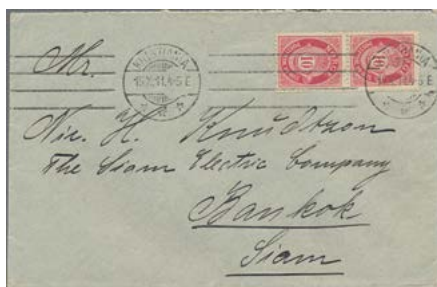 Mr.
KRISTIANIA
15.X.11.4-5 E
10
10
Nic. H. Knudtzon
The Siam Electric Company
Bankok
Siam